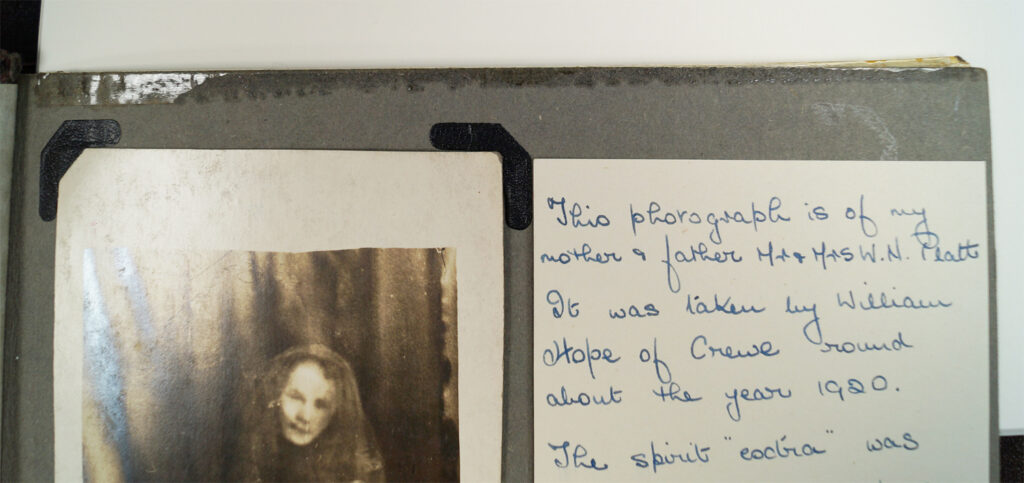 This photograph is of my
mother & father Mr & Mrs W.N. Platt
It was taken by William
Hope of Crewe round
about the year 1920.
The spirit "extra" was